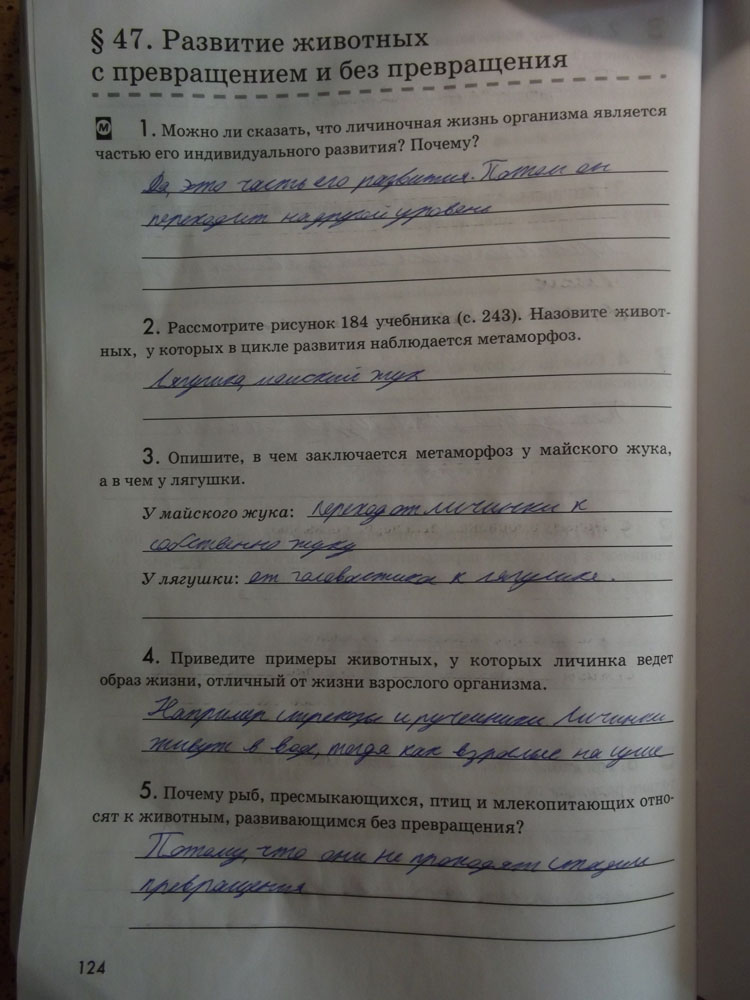 § 47. Развитие животных
с превращением и без превращения
М 1. Можно ли сказать, что личиночная жизнь организма является
частью его индивидуального развития? Почему?
Да, это часть его развития. Потом он
переходит на другой уровень
2. Рассмотрите рисунок 184 учебника (с. 243). Назовите живот-
ных, у которых в цикле развития наблюдается метаморфоз.
Лягушка, майский жук
3. Опишите, в чем заключается метаморфоз у майского жука,
а в чем у лягушки.
У майского жука: переход от личинки к
собственно жуку
У лягушки: от головастика к лягушке.
4. Приведите примеры животных, у которых личинка ведет
образ жизни, отличный от жизни взрослого организма.
Например стрекозы и ручейники личинки
живут в воде, тогда как взрослые на суше
5. Почему рыб, пресмыкающихся, птиц и млекопитающих отно-
сят к животным, развивающимся без превращения?
Потому, что они не проходят стадии
превращения
124